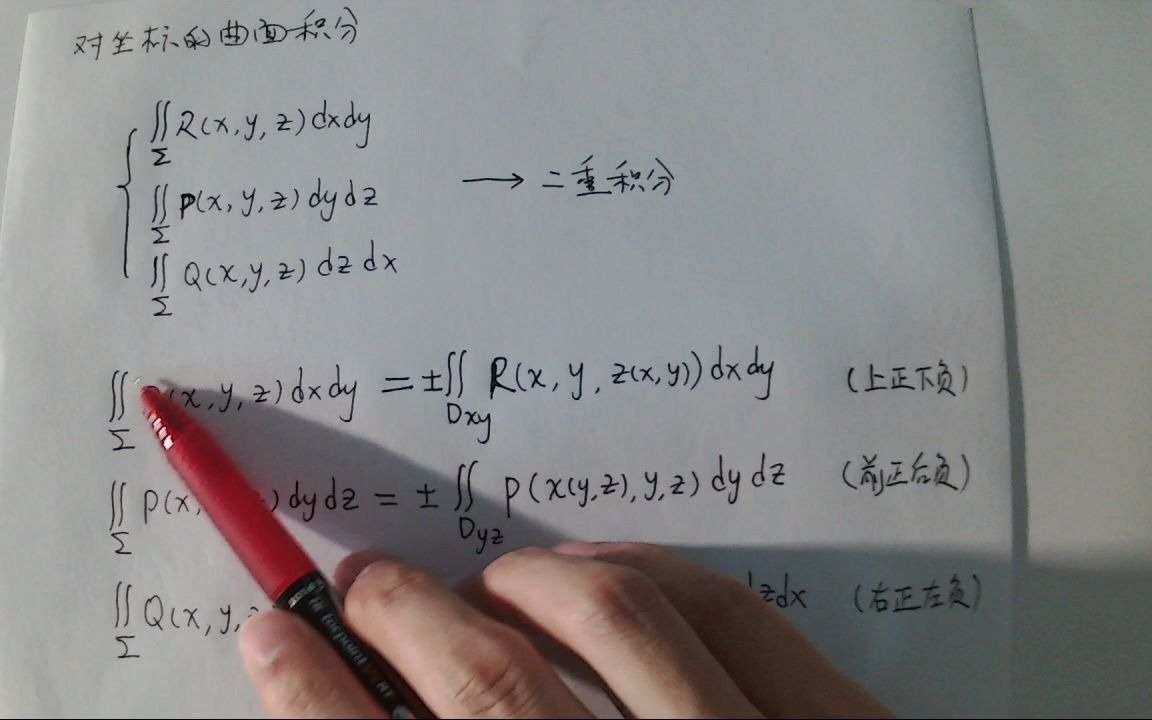 对坐标的曲面积分
∬_Σ R(x,y,z)dxdy
∬_Σ P(x,y,z)dydz → 二重积分
∬_Σ Q(x,y,z)dzdx
∬_Σ (x,y,z)dxdy = ±∬_Dxy R(x,y,z(x,y))dxdy (上正下负)
∬_Σ P(x, )dydz = ±∬_Dyz P(x(y,z),y,z)dydz (前正后负)
∬_Σ Q(x,y, dzdx (右正左负)